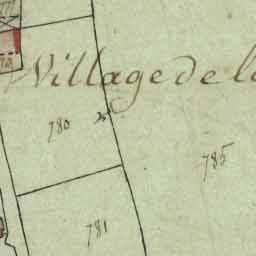 Village de la
780
785
781